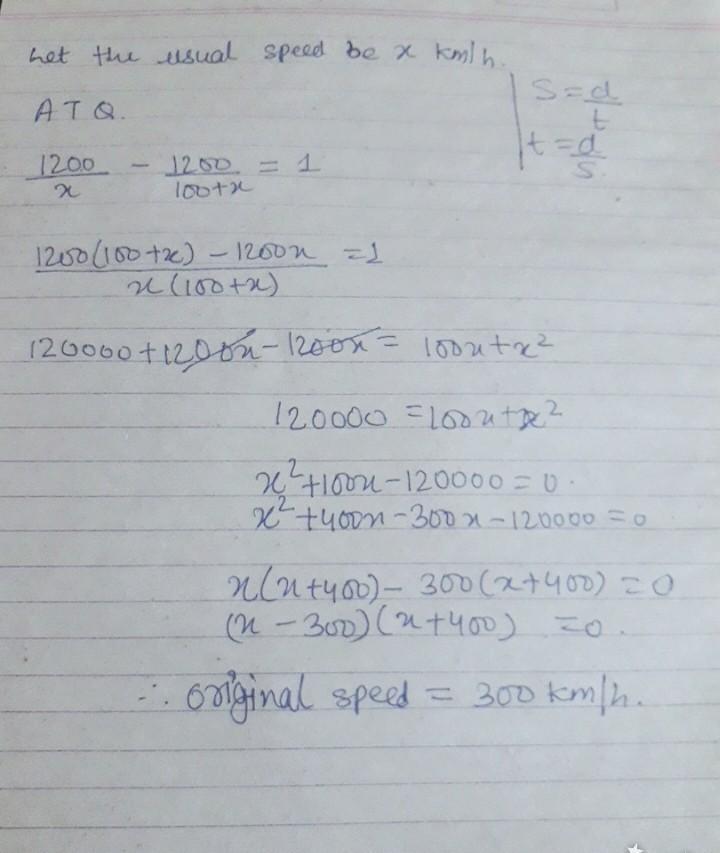 Let the usual speed be x km/h.
ATQ.
S = d/t
t = d/S.
1200/x - 1200/100+x = 1
1200(100+x) - 1200x / x(100+x) = 1
120000 + 1200x - 1200x = 100x + x²
120000 = 100x + x²
x² + 100x - 120000 = 0.
x² + 400x - 300x - 120000 = 0
x(x+400) - 300(x+400) = 0
(x - 300)(x+400) = 0.
∴ original speed = 300 km/h.